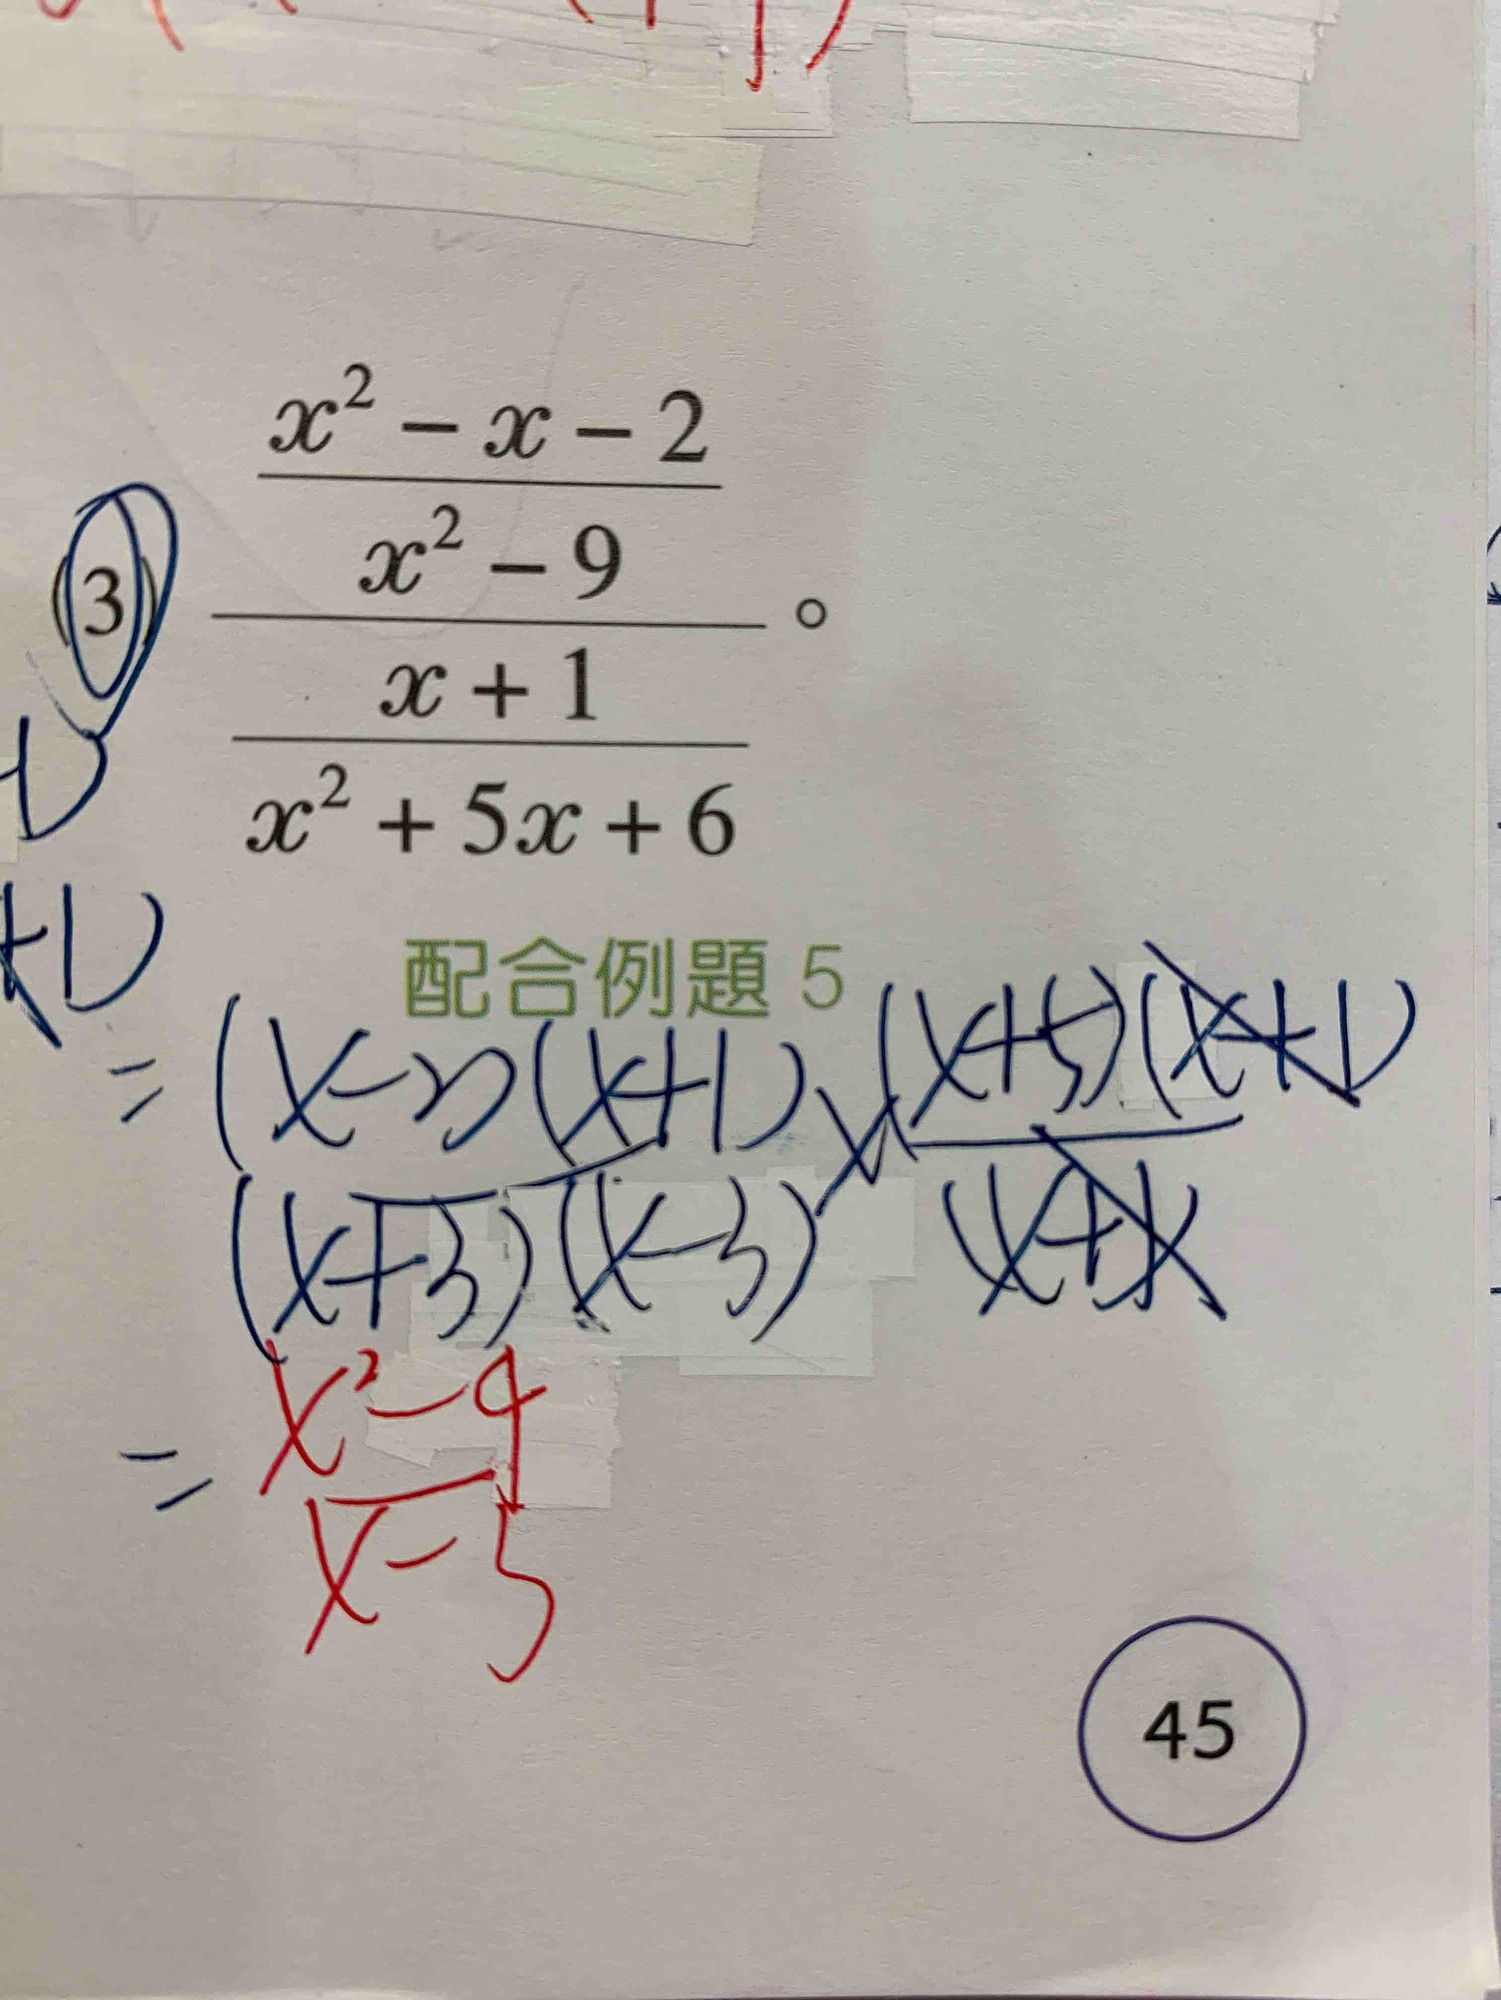 x² − x − 2
x² − 9
(3) 。
x + 1
x² + 5x + 6
+1)
配合例題 5
= (x-2)(x+1) × (x+5)(x+1)
(x+3)(x-3) (x+1)
= x²-4
x-3
45